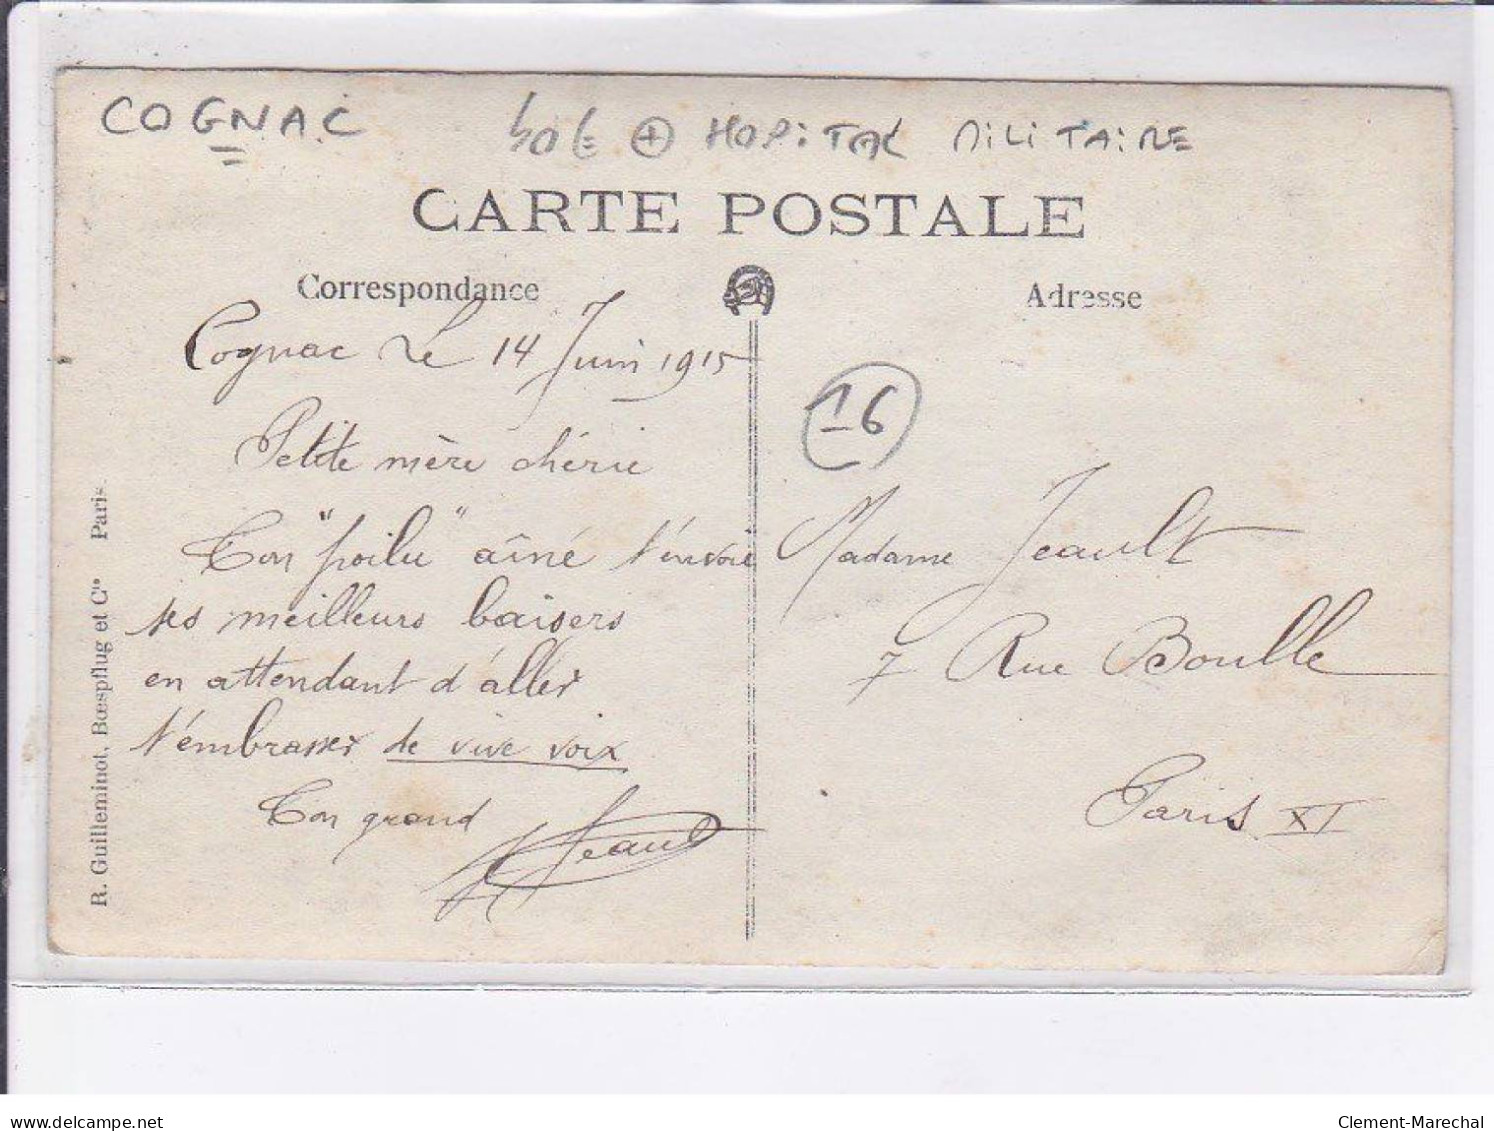 COGNAC HOPITAL MILITAIRE
CARTE POSTALE
Correspondance
Adresse
Cognac Le 14 Juin 1915
16
Petite mère chérie
Ton "poilu" aîné t'envoie
ses meilleurs baisers
en attendant d'aller
t'embrasser de vive voix
Ton grand
Jeault
Madame Jeault
7 Rue Boulle
Paris XI
R. Guilleminot, Bœspflug et Cie Paris
delcampe.net
Clement-Marechal